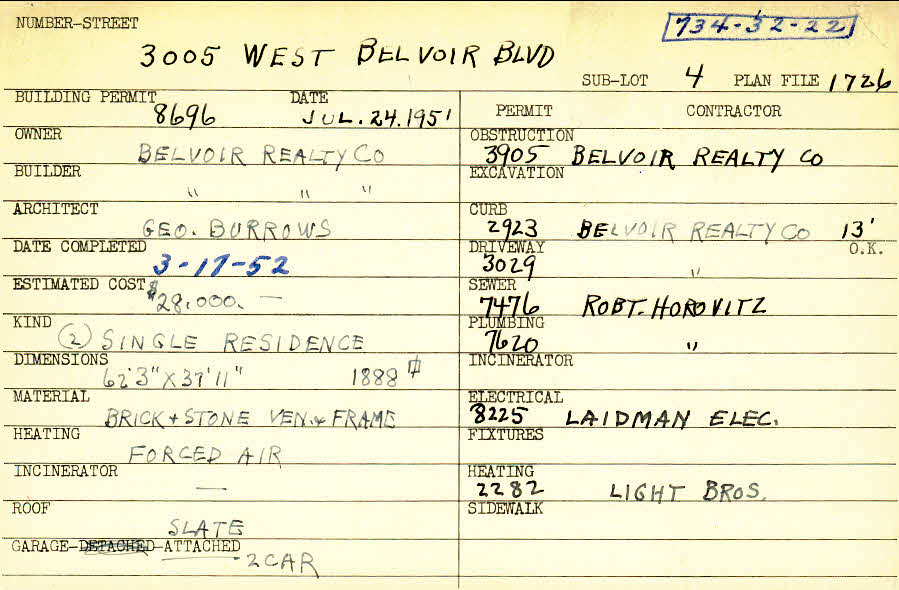 NUMBER-STREET
734-32-22
3005 WEST BELVOIR BLVD
SUB-LOT 4 PLAN FILE 1726
BUILDING PERMIT 8696 DATE JUL. 24. 1951
OWNER BELVOIR REALTY CO
BUILDER " " "
ARCHITECT GEO. BURROWS
DATE COMPLETED 3-17-52
ESTIMATED COST $28,000. —
KIND (2) SINGLE RESIDENCE
DIMENSIONS 62'3" X 37'11" 1888 ⌗
MATERIAL BRICK + STONE VEN. + FRAME
HEATING FORCED AIR
INCINERATOR —
ROOF SLATE
GARAGE-DETACHED-ATTACHED - 2 CAR
PERMIT CONTRACTOR
OBSTRUCTION 3905 BELVOIR REALTY CO
EXCAVATION
CURB 2923 BELVOIR REALTY CO 13' O.K.
DRIVEWAY 3029 "
SEWER 7476 ROBT. HOROVITZ
PLUMBING 7620 "
INCINERATOR
ELECTRICAL 8225 LAIDMAN ELEC.
FIXTURES
HEATING 2282 LIGHT BROS.
SIDEWALK